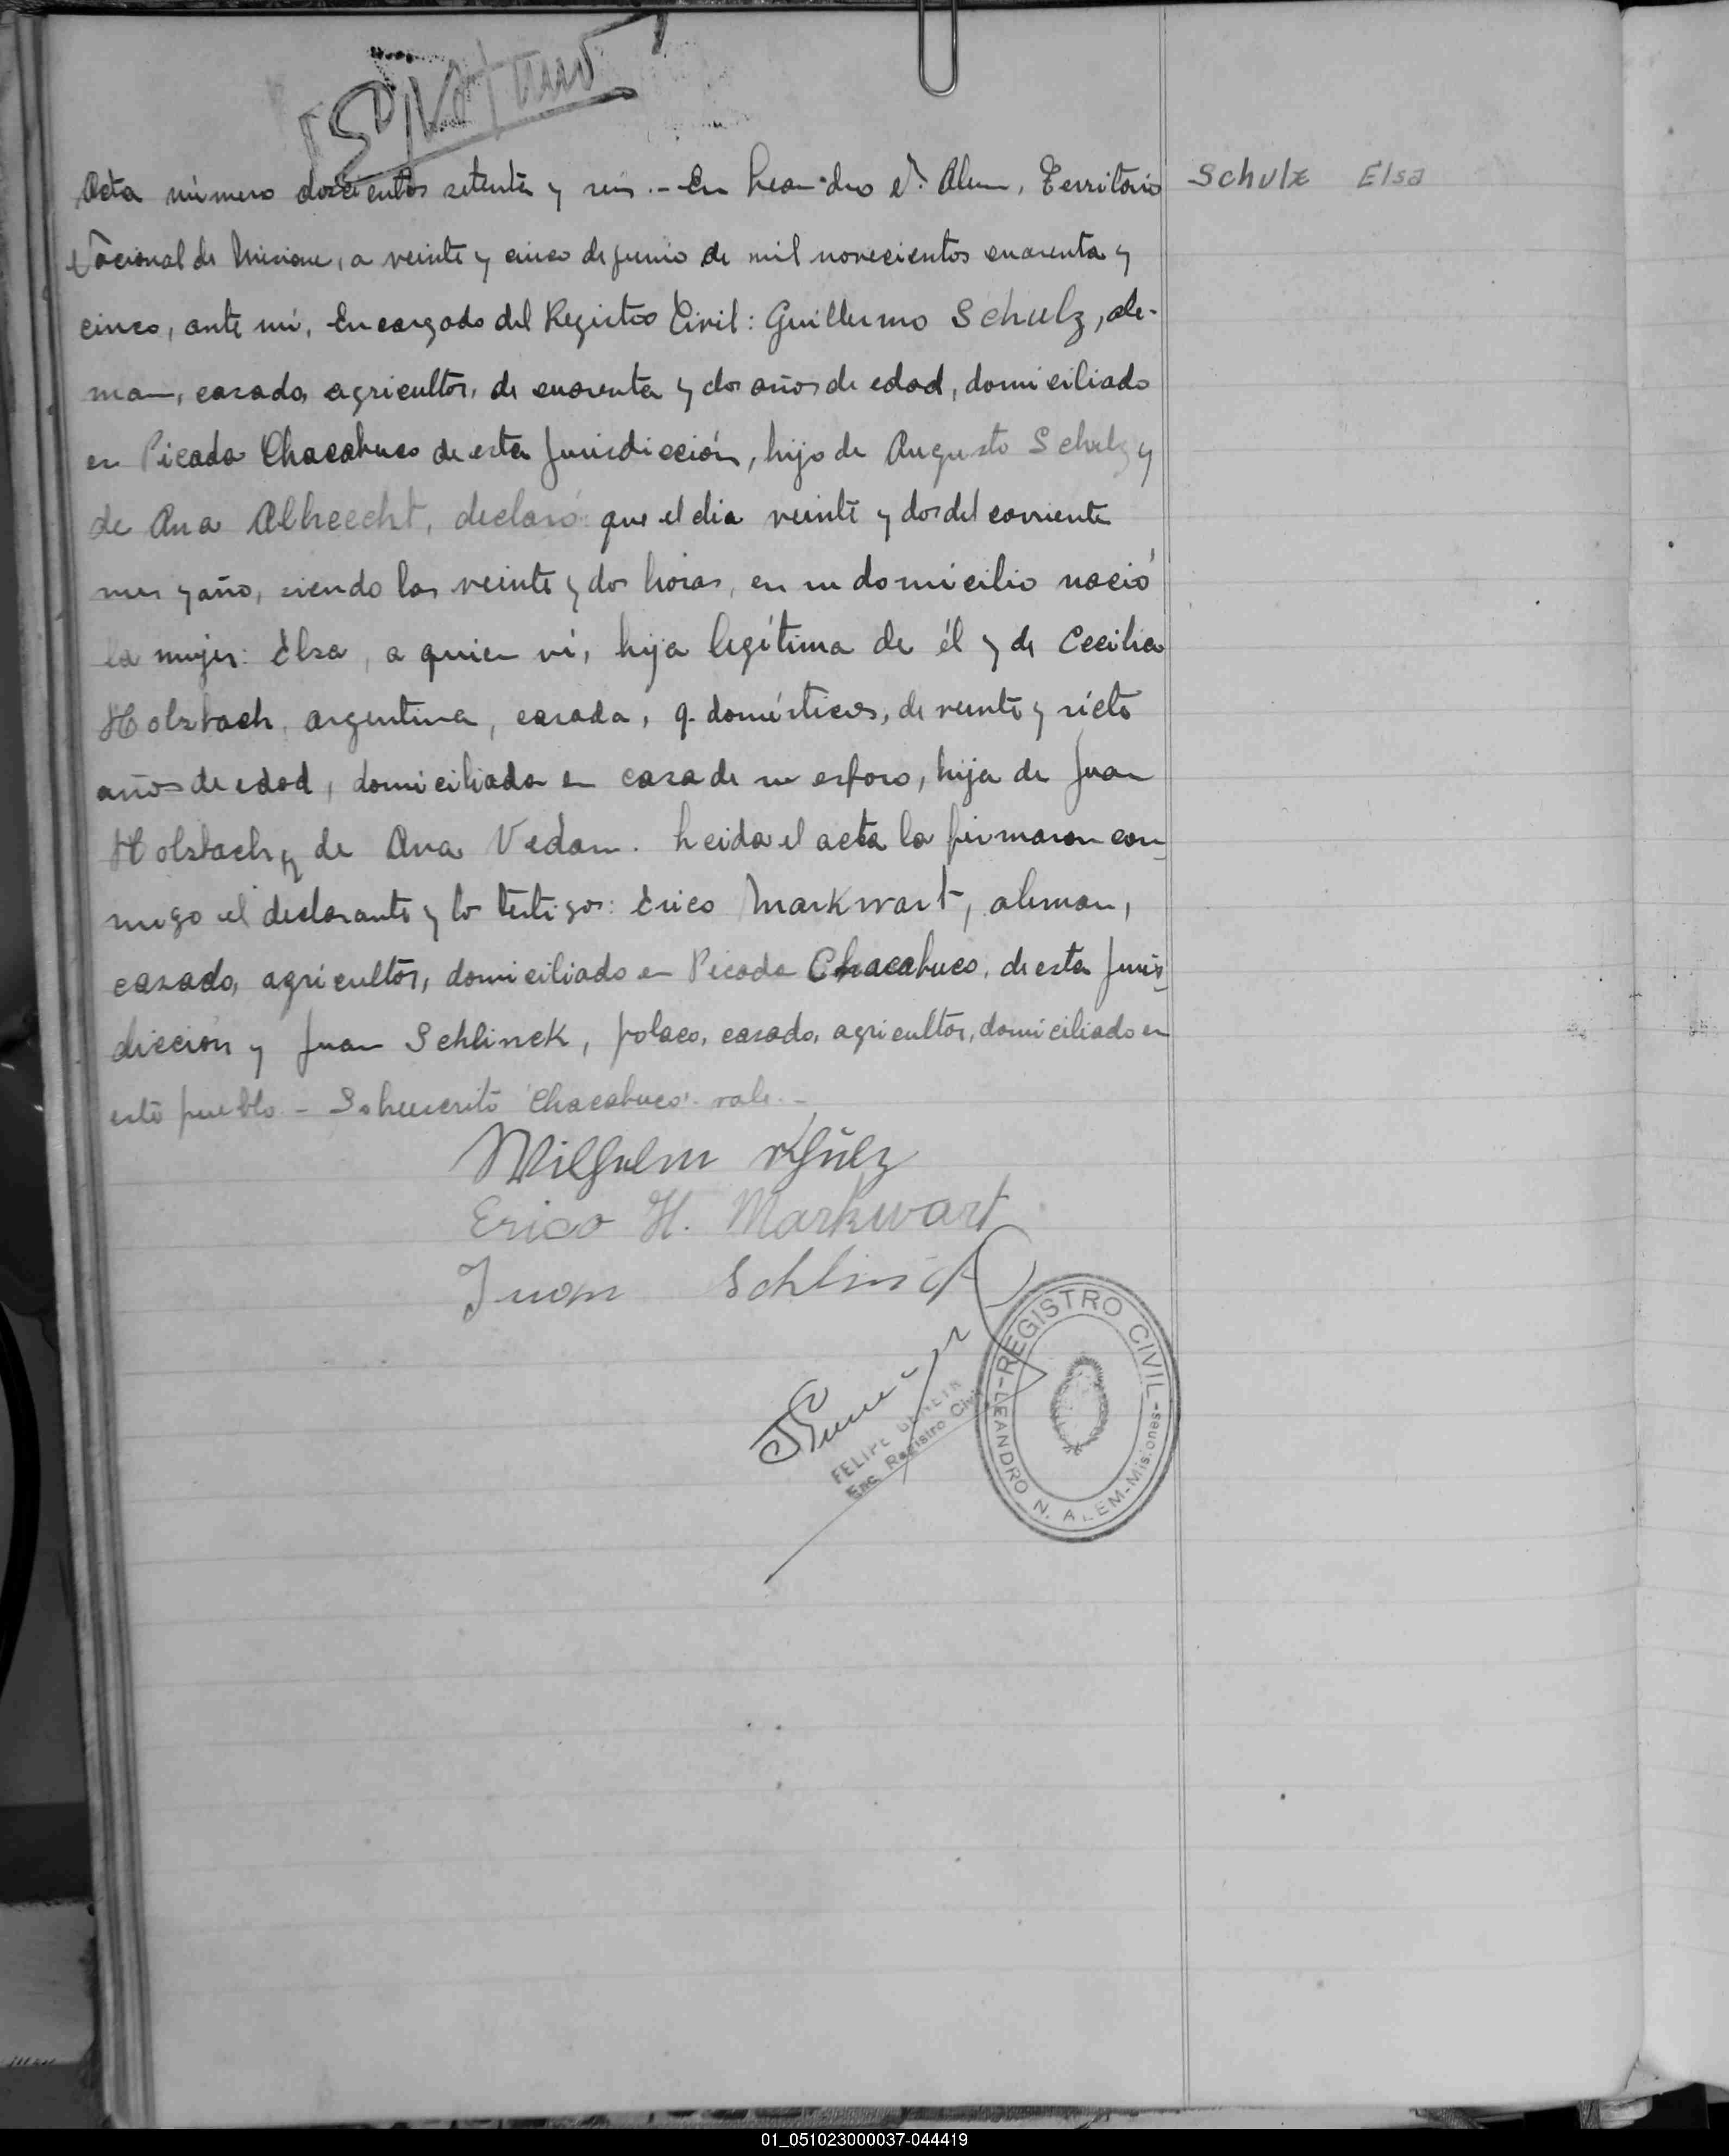 Acta número doscientos setenta y seis.- En Leandro N. Alem, Territorio
Schulz Elsa
Nacional de Misiones, a veinte y cinco de junio de mil novecientos cuarenta y
cinco, ante mí, Encargado del Registro Civil: Guillermo Schulz, ale-
man, casado, agricultor, de cuarenta y dos años de edad, domiciliado
en Picada Chacabuco de esta Jurisdicción, hijo de Augusto Schulz y
de Ana Albrecht, declaró: que el dia veinte y dos del corriente
mes y año, siendo las veinte y dos horas, en su domicilio nació
la mujer: Elsa, a quien ví, hija legítima de él y de Cecilia
Holzbach, argentina, casada, q. domésticos, de veinte y siete
años de edad, domiciliada en casa de su esposo, hija de Juan
Holzbach y de Ana Vedan. Leida el acta la firmaron con-
migo el declarante y los testigos: Erico Markwart, aleman,
casado, agricultor, domiciliado en Picada Chacabuco, de esta Juris-
dicción y Juan Schlinck, polaco, casado, agricultor, domiciliado en
este pueblo - Sobrescrito "Chacabuco" vale.-
Wilhelm Schülz
Erico H. Markwart
Juan Schlinck
FELIPE
Enc. Registro Civil
REGISTRO CIVIL
LEANDRO N. ALEM-Misiones-
01_051023000037-044419